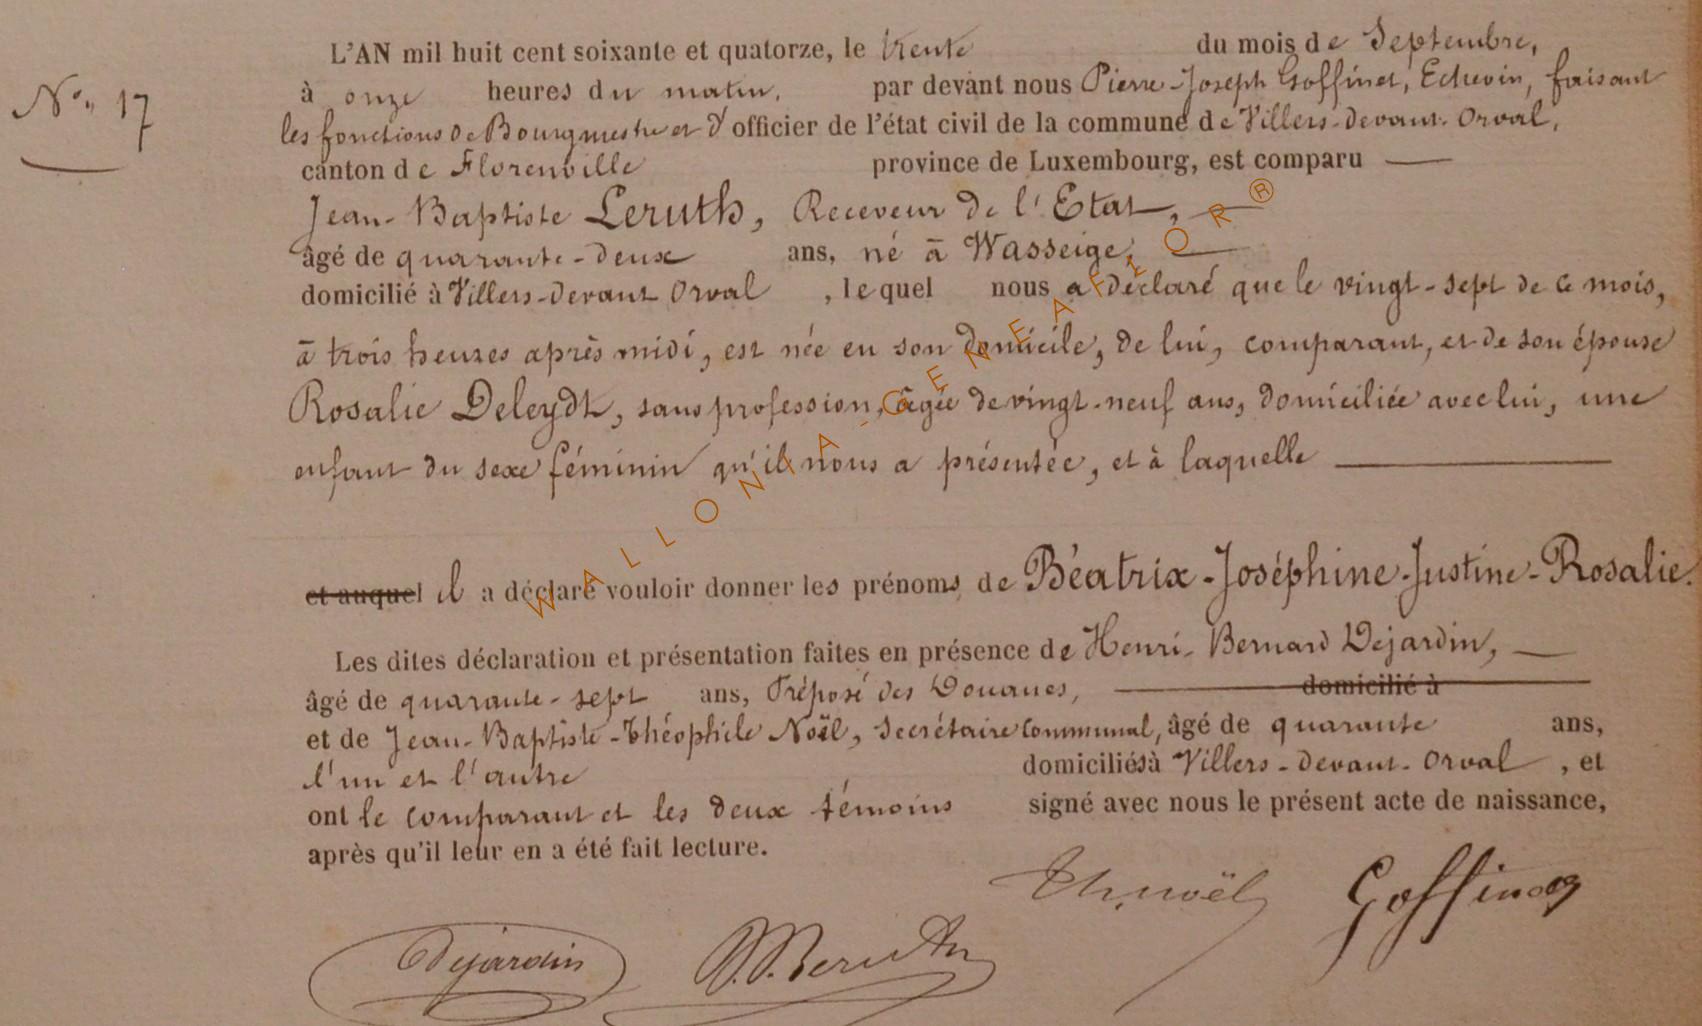 L'AN mil huit cent soixante et quatorze, le trente du mois de Septembre,
N° 17
à onze heures du matin, par devant nous Pierre-Joseph Goffinet, Echevin, faisant
les fonctions de Bourgmestre et d'officier de l'état civil de la commune de Villers-devant-Orval,
canton de Florenville province de Luxembourg, est comparu
Jean-Baptiste Leruth, Receveur de l'Etat,
âgé de quarante-deux ans, né à Wasseige,
domicilié à Villers-devant Orval, lequel nous a déclaré que le vingt-sept de ce mois,
à trois heures après midi, est née en son domicile, de lui, comparant, et de son épouse
Rosalie Deleydt, sans profession, âgée de vingt-neuf ans, domiciliée avec lui, une
enfant du sexe féminin qu'il nous a présentée, et à laquelle
et auquel il a déclaré vouloir donner les prénoms de Béatrix-Joséphine-Justine-Rosalie.
Les dites déclaration et présentation faites en présence de Henri-Bernard Dejardin,
âgé de quarante-sept ans, Préposé des Douanes, domicilié à
et de Jean-Baptiste-Théophile Noël, secrétaire communal, âgé de quarante ans,
l'un et l'autre domiciliés à Villers-devant-Orval, et
ont le comparant et les deux témoins signé avec nous le présent acte de naissance,
après qu'il leur en a été fait lecture.
Th. Noël Goffinet
Dejardin Leruth
WALLONIA-GENEAFLOR®